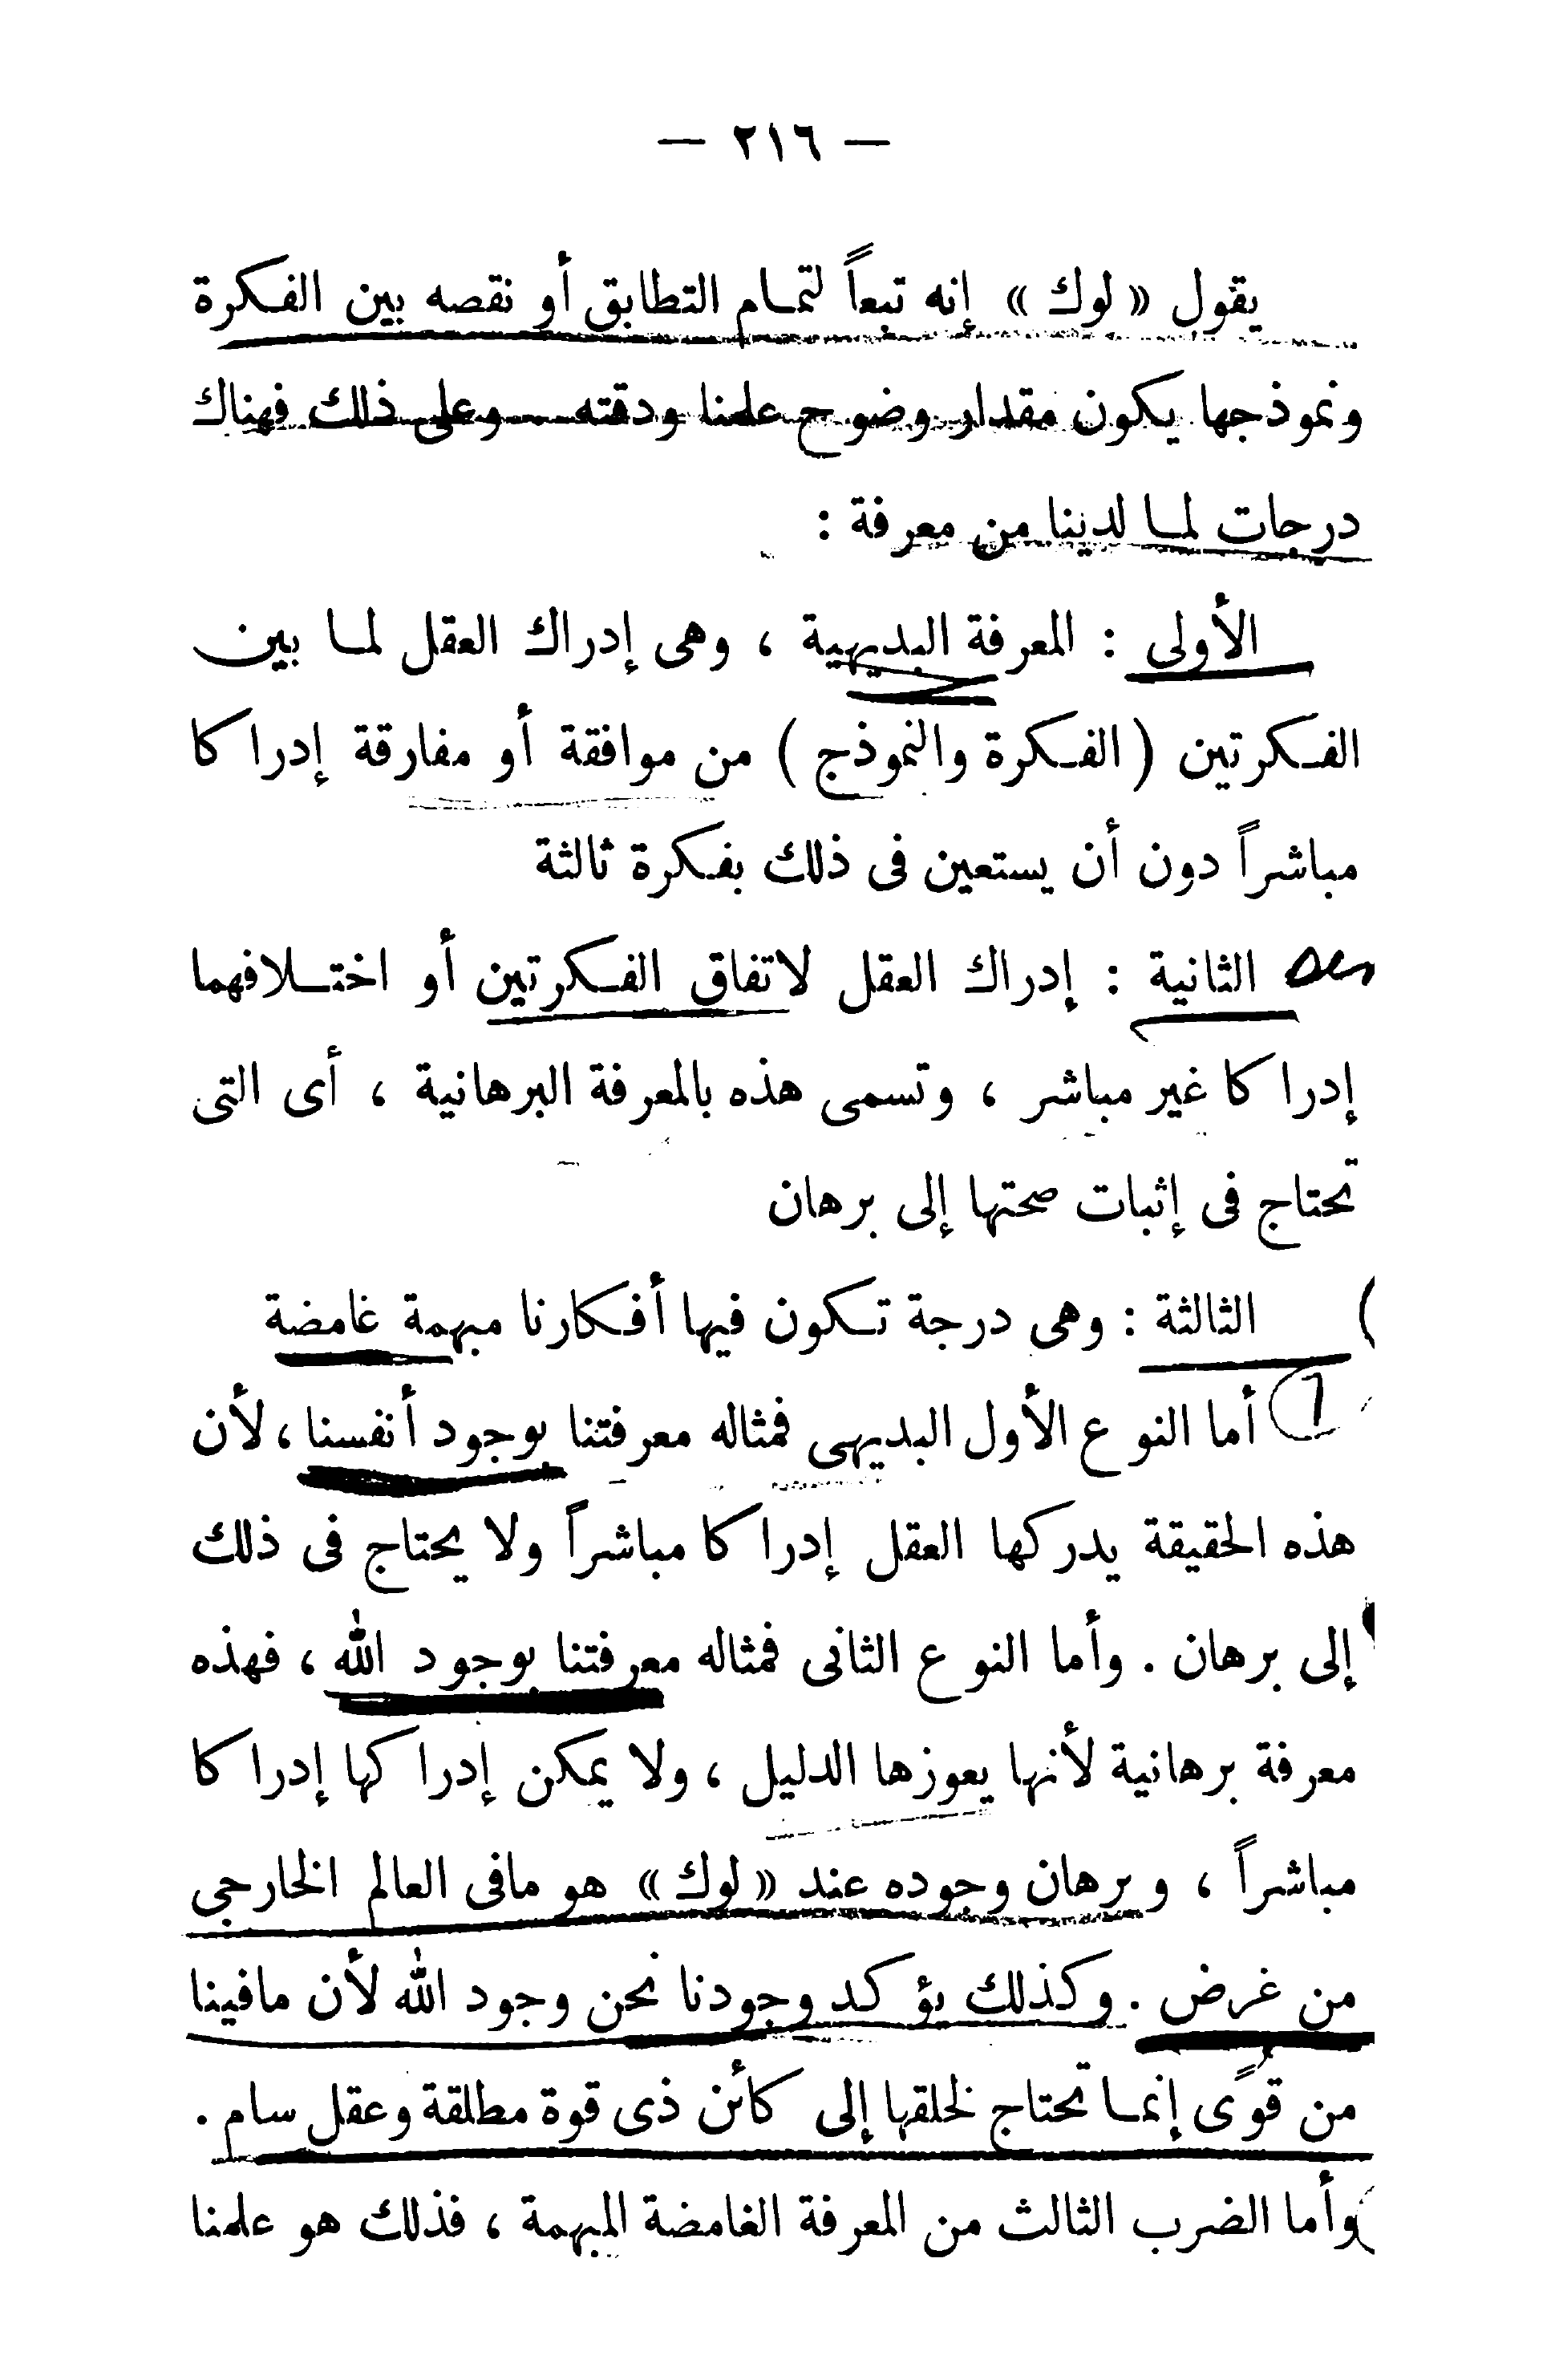 — ٢١٦ —
يقول « لوك » إنه تبعاً لتمام التطابق أو نقصه بين الفكرة
ونموذجها يكون مقدار وضوح علمنا ودقته . وعلى ذلك فهناك
درجات لما لدينا من معرفة :
الأولى : المعرفة البديهية ، وهى إدراك العقل لما بين
الفكرتين ( الفكرة والنموذج ) من موافقة أو مفارقة إدراكا
مباشراً دون أن يستعين فى ذلك بفكرة ثالثة
الثانية : إدراك العقل لاتفاق الفكرتين أو اختلافهما
إدراكا غير مباشر ، وتسمى هذه بالمعرفة البرهانية ، أى التى
تحتاج فى إثبات صحتها إلى برهان
الثالثة : وهى درجة تكون فيها أفكارنا مبهمة غامضة
أما النوع الأول البديهى فمثاله معرفتنا بوجود أنفسنا ، لأن
هذه الحقيقة يدركها العقل إدراكا مباشراً ولا يحتاج فى ذلك
إلى برهان . وأما النوع الثانى فمثاله معرفتنا بوجود الله ، فهذه
معرفة برهانية لأنها يعوزها الدليل ، ولا يمكن إدراكها إدراكا
مباشراً ، وبرهان وجوده عند « لوك » هو مافى العالم الخارجى
من غرض . وكذلك يؤكد وجودنا نحن وجود الله لأن مافينا
من قوًى إنما تحتاج لخلقها إلى كائن ذى قوة مطلقة وعقل سام .
وأما الضرب الثالث من المعرفة الغامضة المبهمة ، فذلك هو علمنا